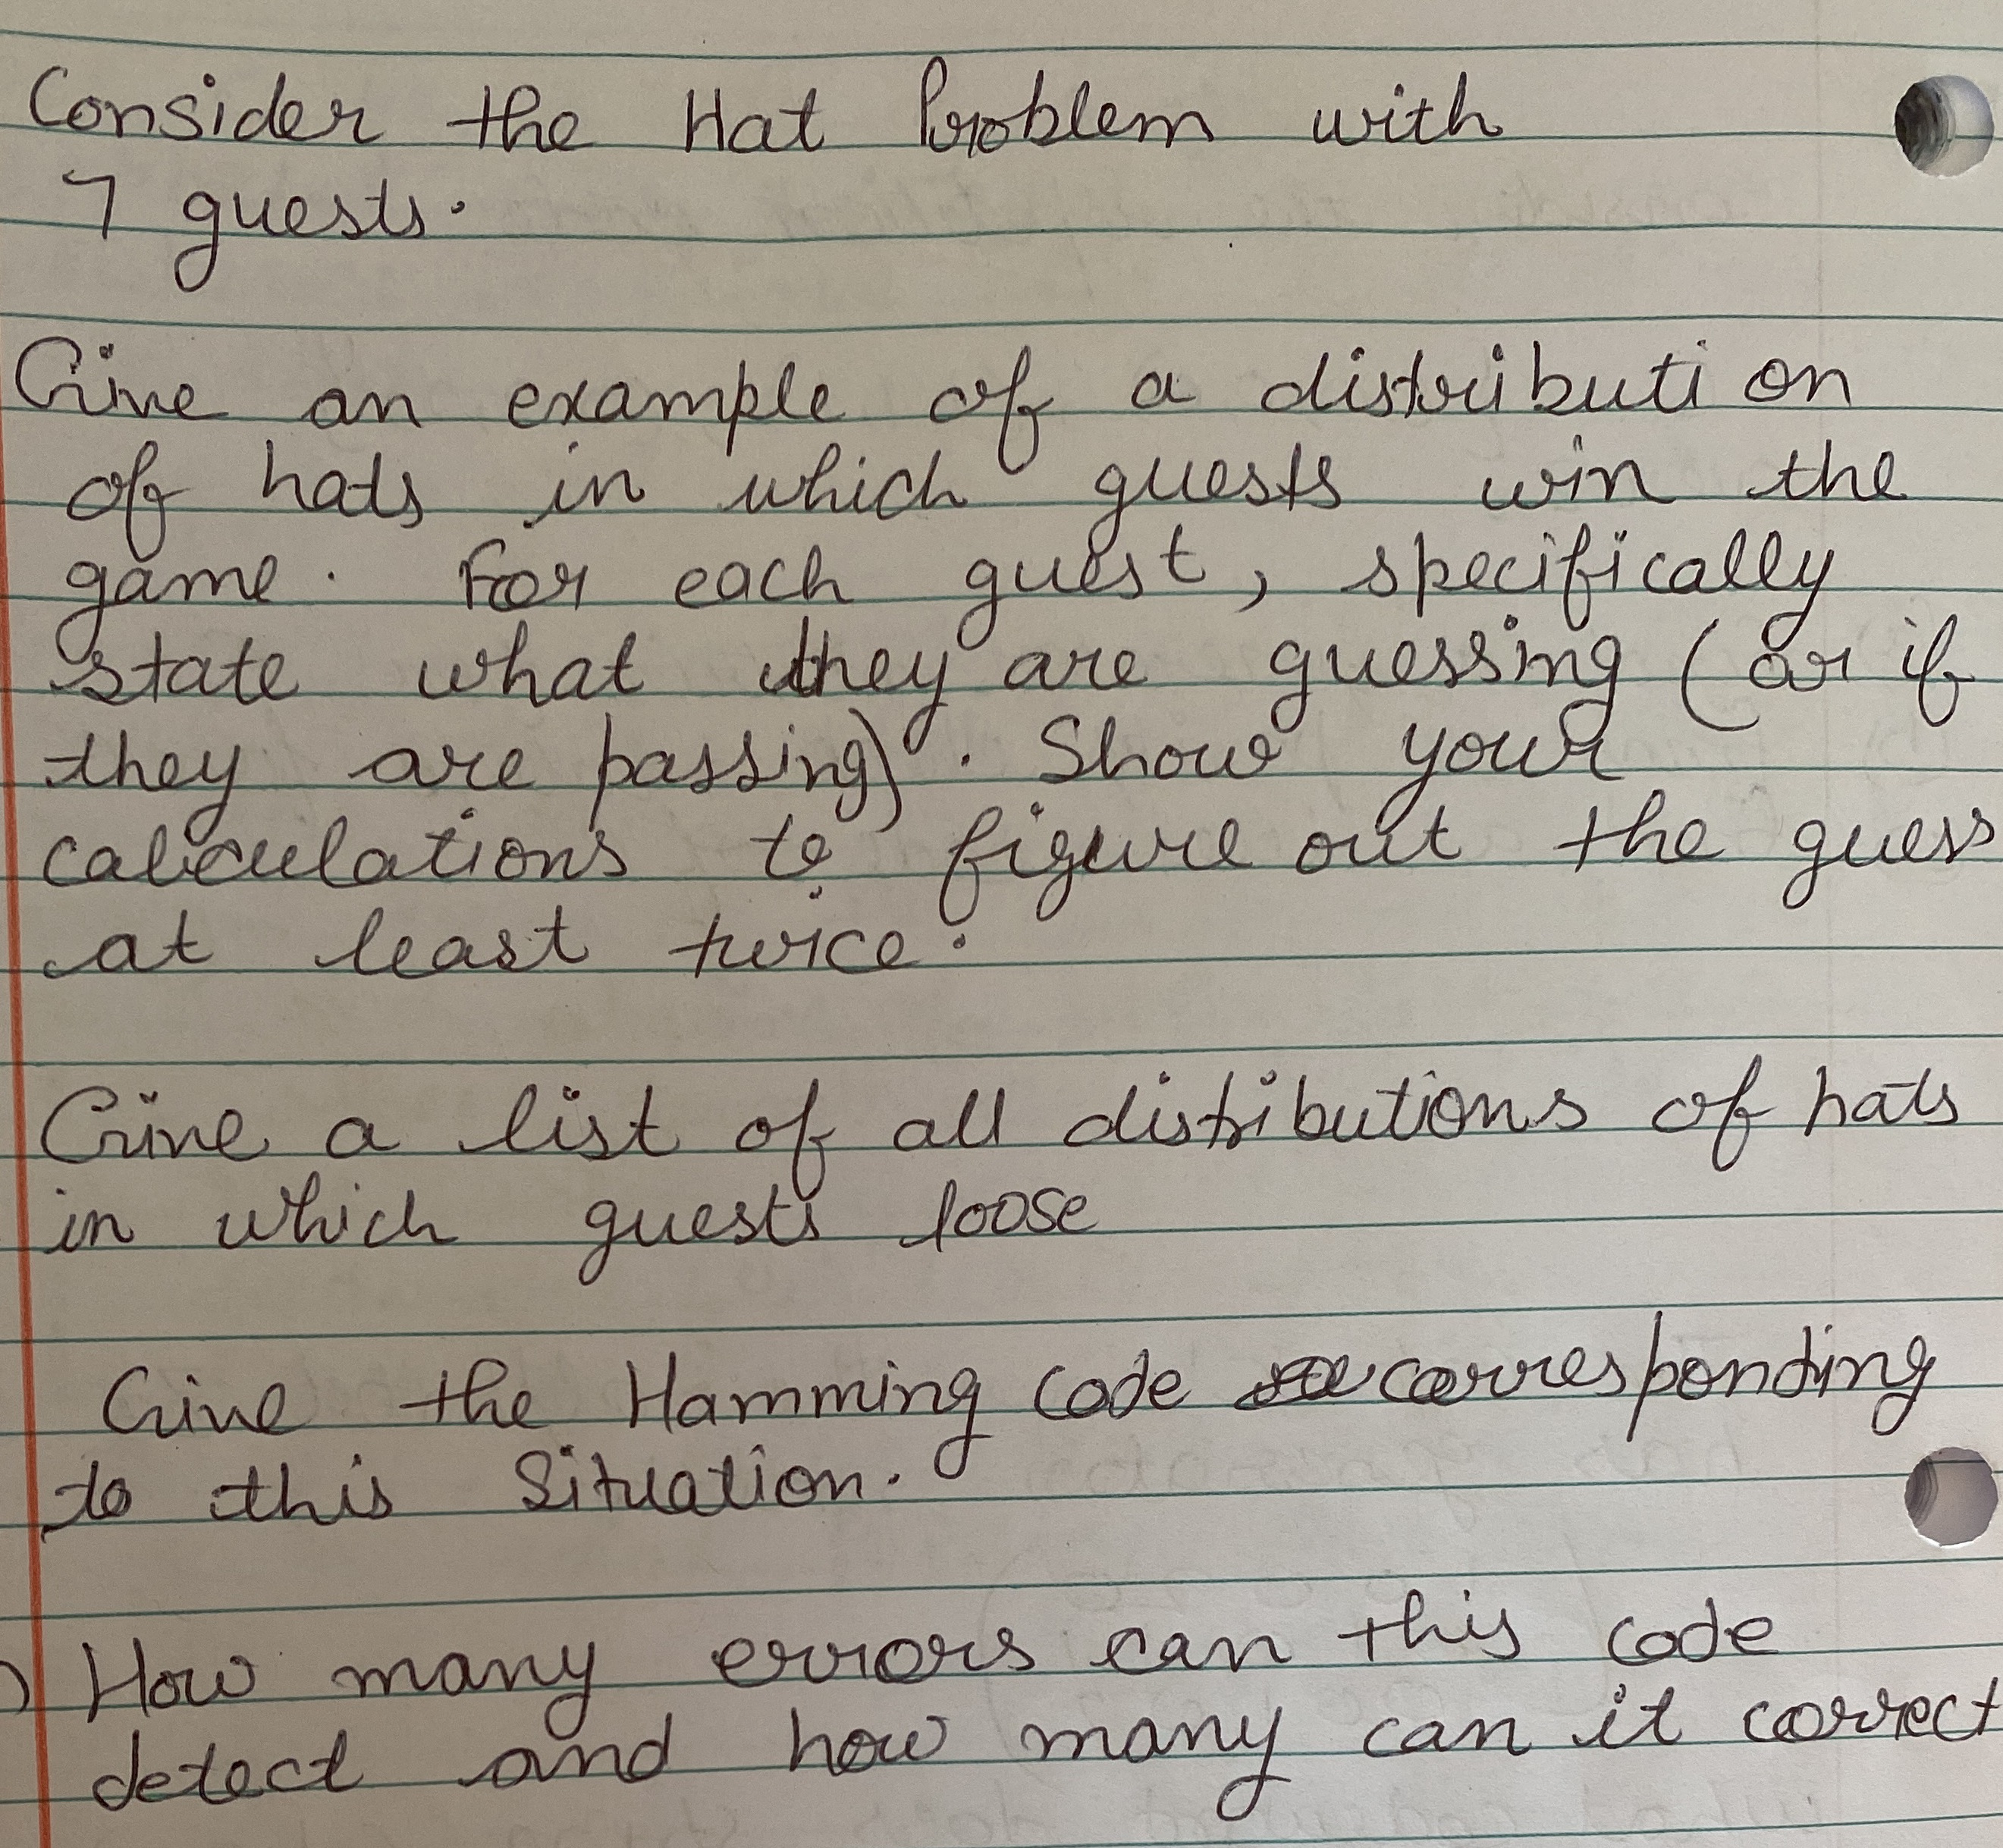 Consider the Hat Problem with
7 guests.
Give an example of a distribution
of hats in which guests win the
game. For each guest, specifically
state what they are guessing (or if
they are passing). Show your
calculations to figure out the guess
at least twice.
Give a list of all distributions of hats
in which guests loose
Give the Hamming code corresponding
to this Situation.
) How many errors can this code
detect and how many can it correct